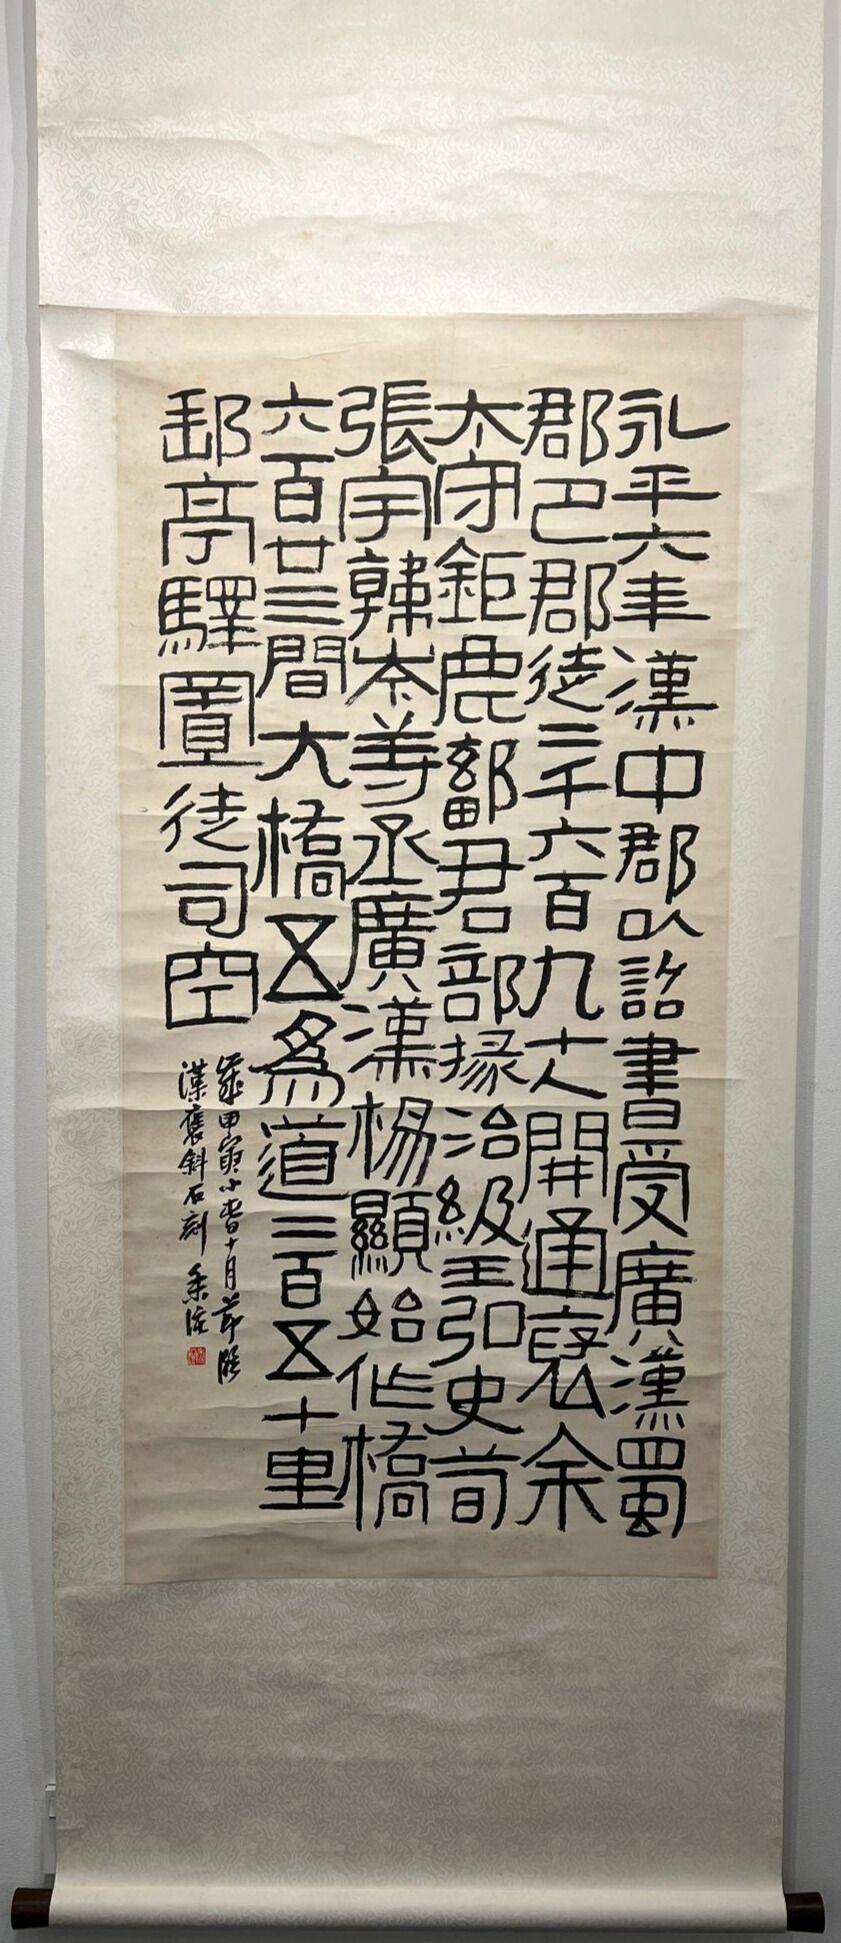 永平六年漢中郡以詔書受廣漢蜀
郡巴郡徒二千六百九十人開通褒余
太守鉅鹿鄐君部掾治級王弘史荀
張宇韓岑等丞廣漢楊顯始作橋
六百廿三間大橋五為道二百五十里
郵亭驛置徒司空
歲甲寅小春十月節臨
漢褒斜石刻